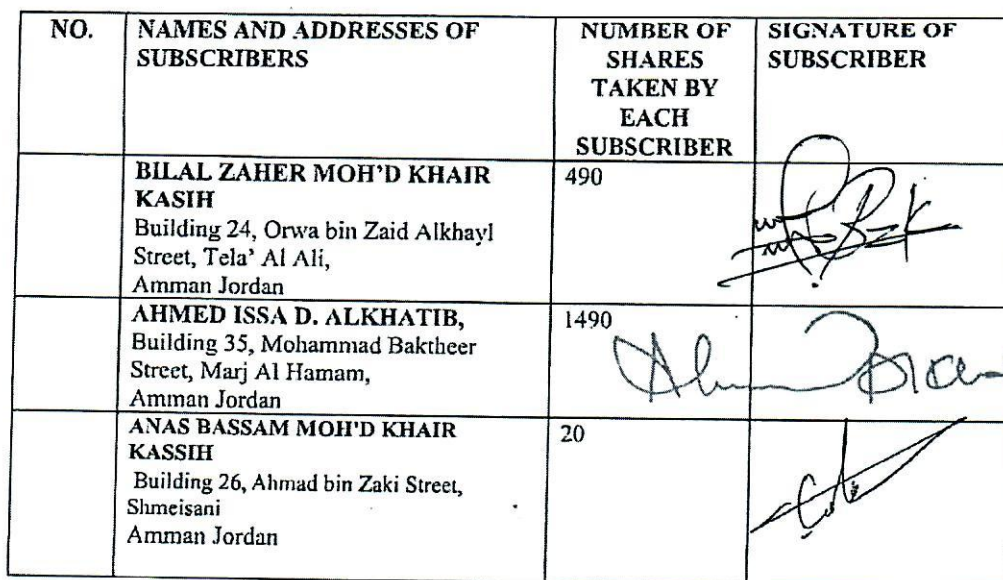 NO.
NAMES AND ADDRESSES OF
SUBSCRIBERS
NUMBER OF
SHARES
TAKEN BY
EACH
SUBSCRIBER
SIGNATURE OF
SUBSCRIBER
BILAL ZAHER MOH'D KHAIR
KASIH
Building 24, Orwa bin Zaid Alkhayl
Street, Tela' Al Ali,
Amman Jordan
490
AHMED ISSA D. ALKHATIB,
Building 35, Mohammad Baktheer
Street, Marj Al Hamam,
Amman Jordan
1490
ANAS BASSAM MOH'D KHAIR
KASSIH
Building 26, Ahmad bin Zaki Street,
Shmeisani
Amman Jordan
20